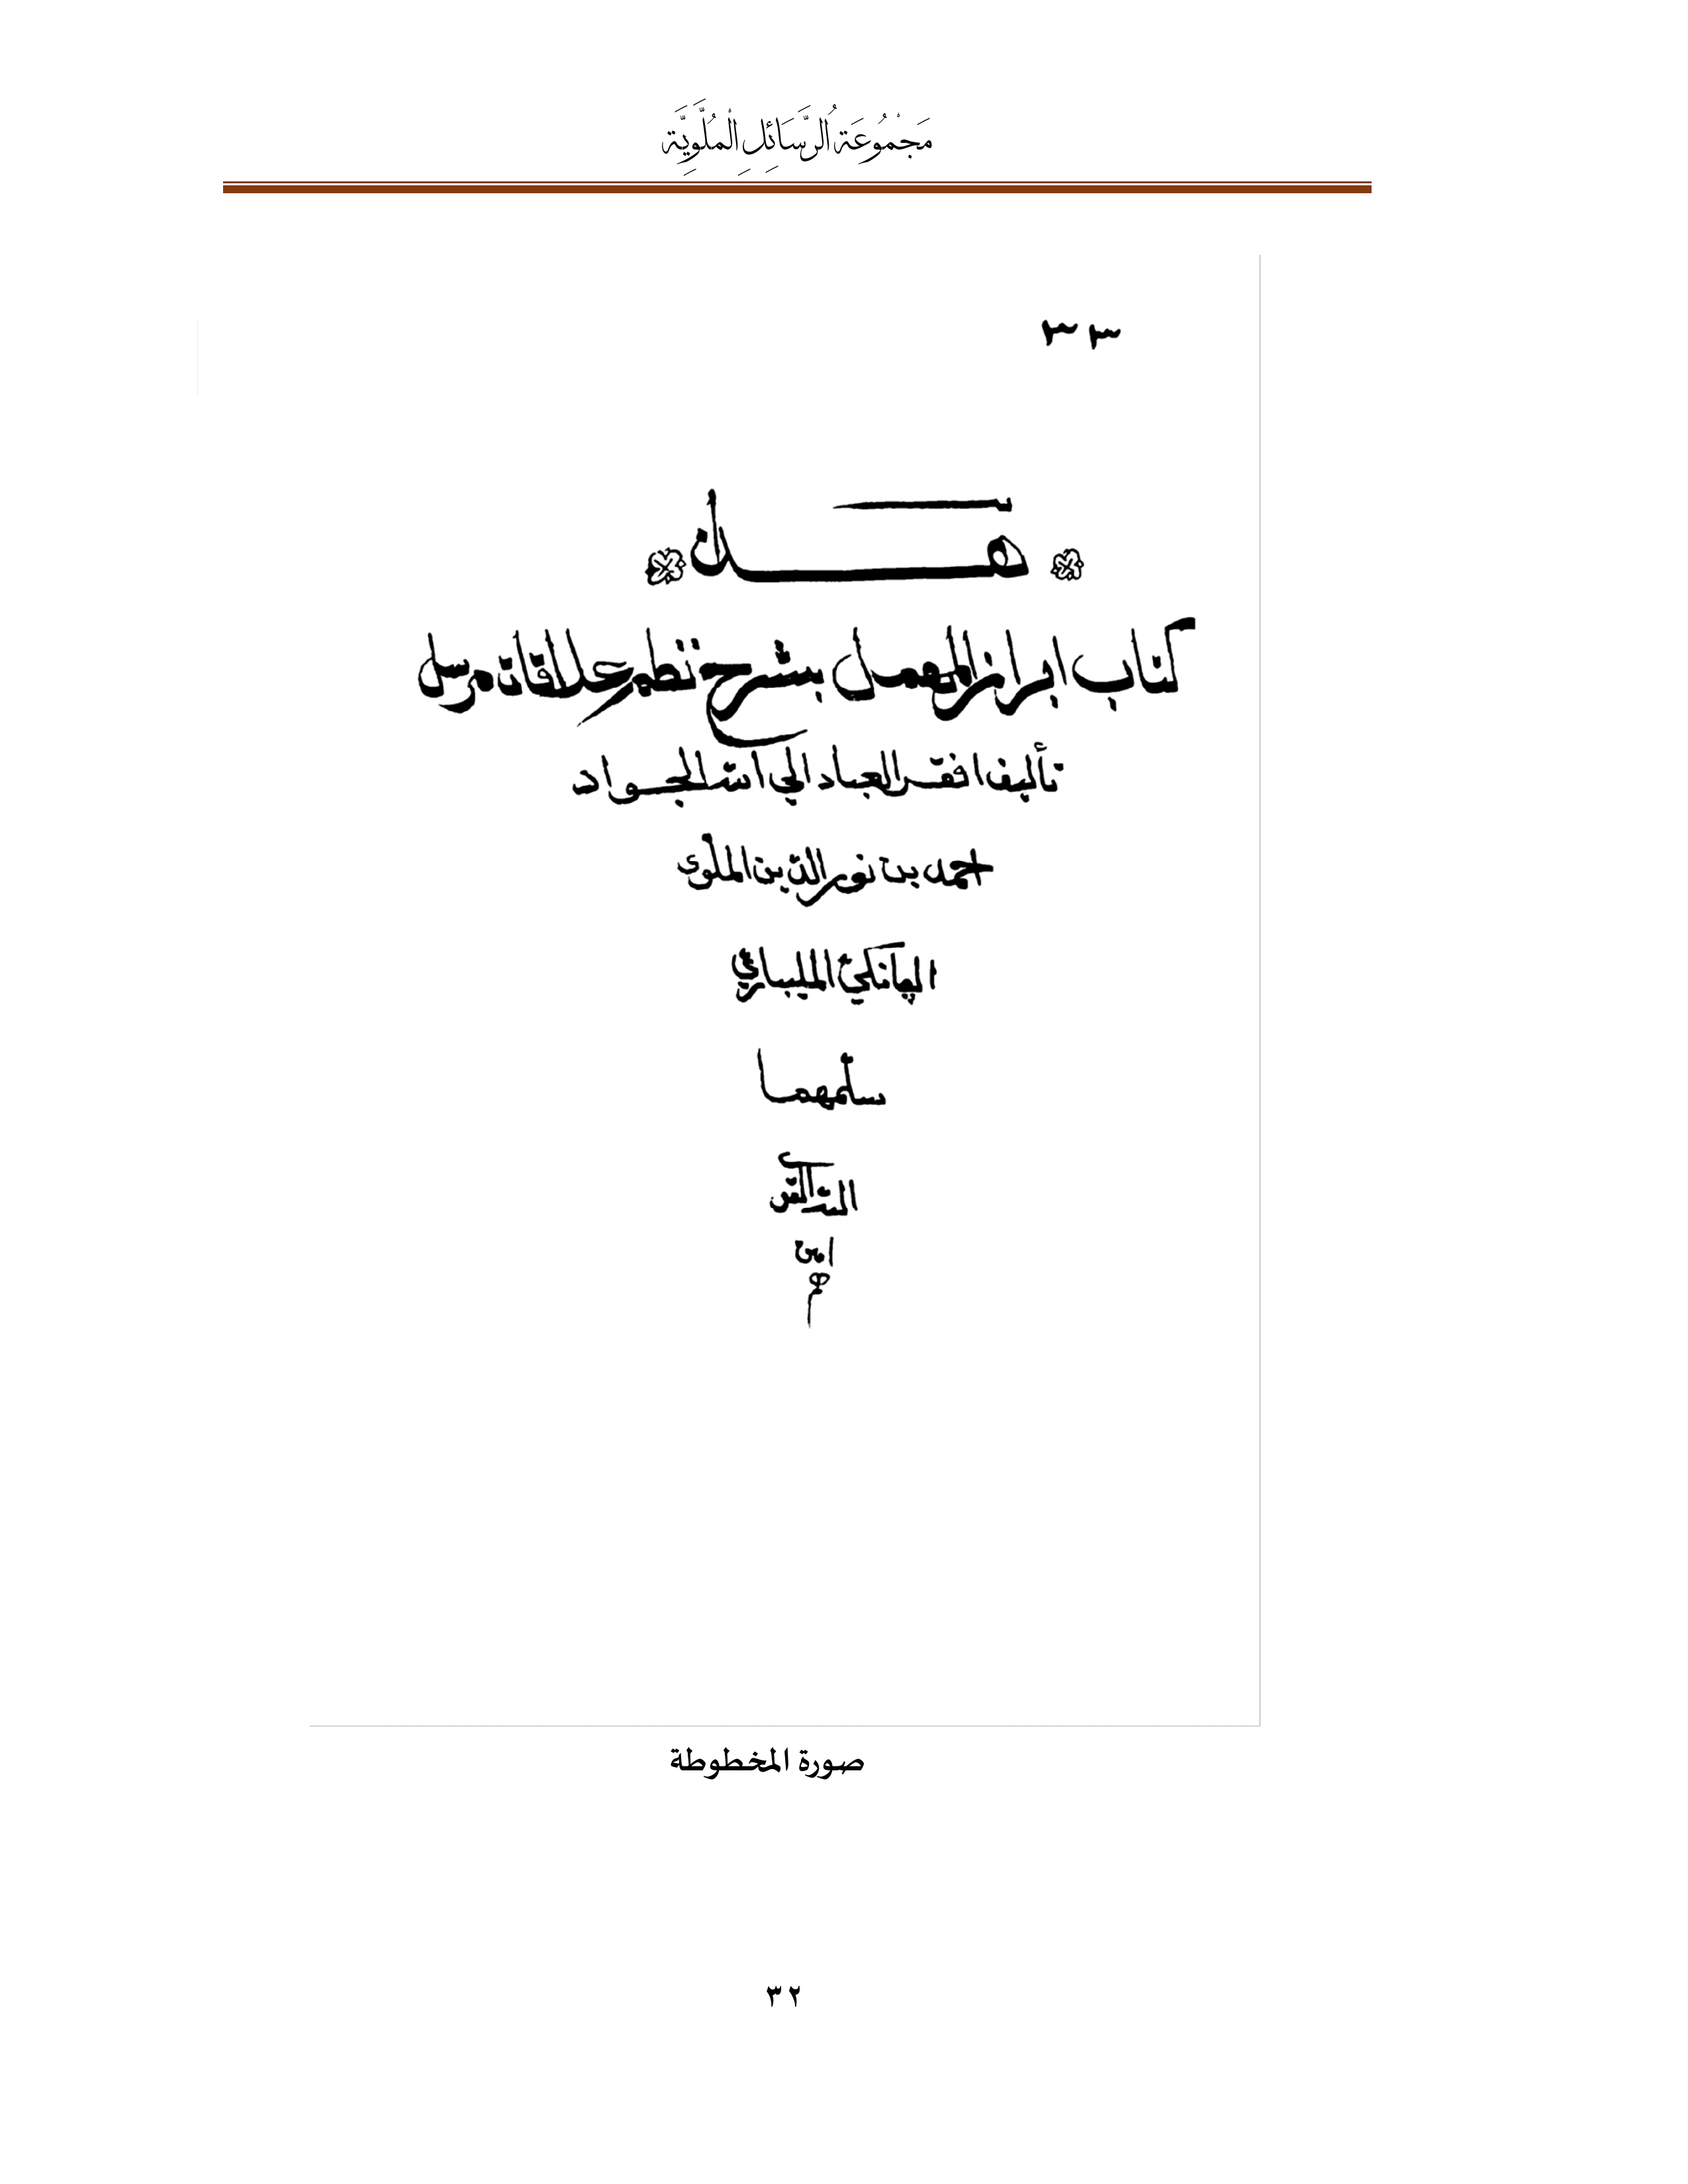 مَجْمُوعَةُ الرَّسَائِلِ الْمُلَّوِيَّةِ
٣٣
هـــــذا
كتاب ابراز المهمل بشرح نظم علاقات مرسل
تأليف افقر العباد الي الله الجواد
احمد بن نور الدين الملوي
الپانكي المليباري
سلمهما
الله
امين
صورة المخطوطة
٣٢